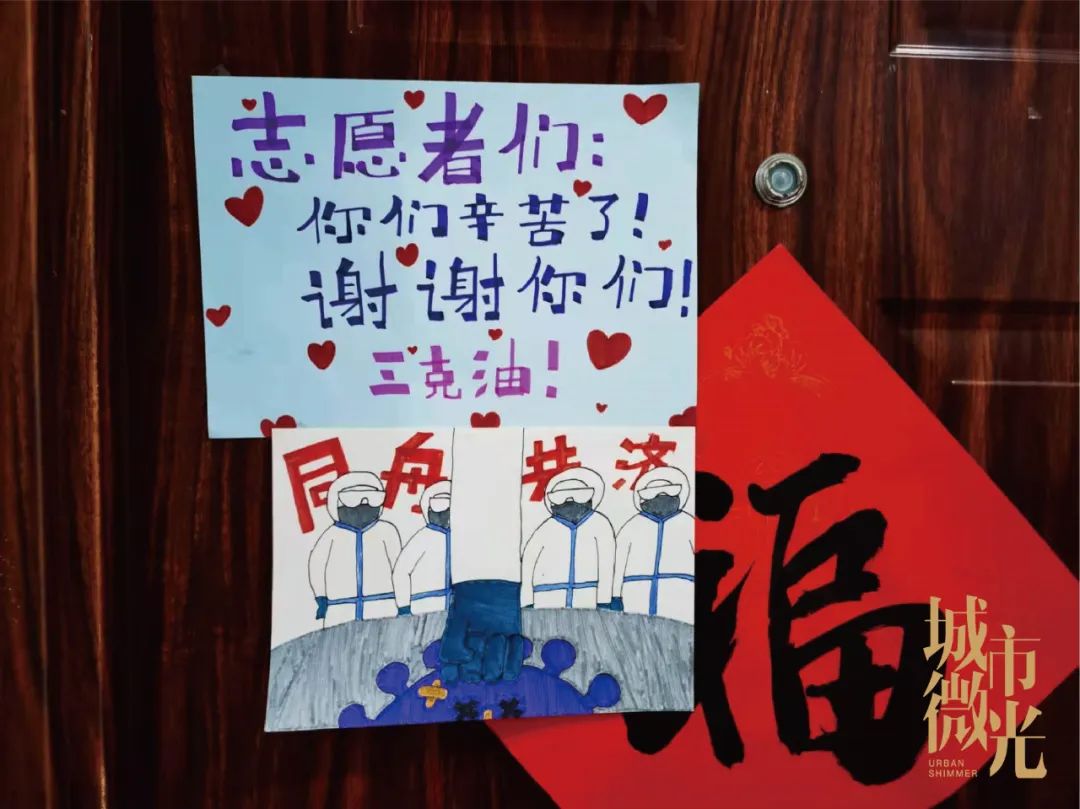 志愿者们：
你们辛苦了！
谢谢你们！
三克油！
同舟共济
福
城市
微光
URBAN
SHIMMER